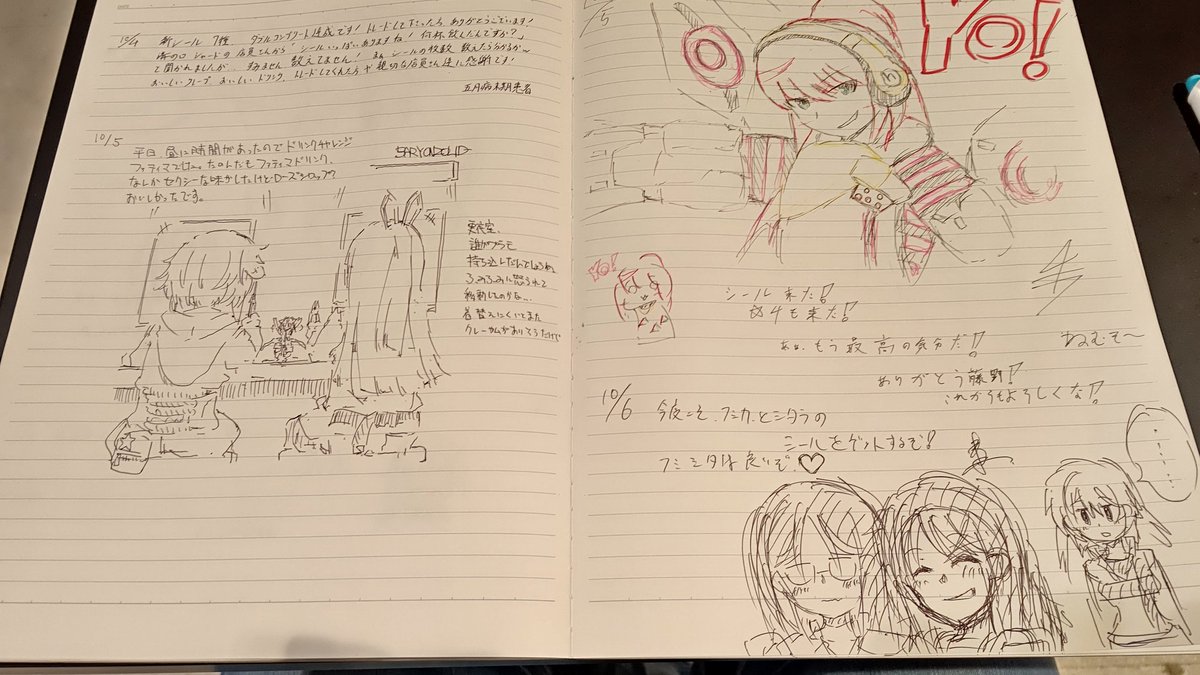 10/4 新シール7種、ダブルコンプリート達成です！トレードして下さったら、ありがとうございます！
店員さんから「シールいっぱいありますね！何杯飲んだんですか？」
て聞かれましたが すみません 数えてません！ シールの枚数 数えたらわかるが〜
おいしいクレープ おいしいドリンク、トレードしてくれた方々 親切な店員さん達に感謝です！
五月病末期患者
10/5
平日、昼に時間があったのでドリンクチャレンジ
ファティマでした。たのんだもファティマドリンク、
なんかセクシーな味がしたけどローズシロップ？
おいしかったです。
更衣室
誰がプラモ
持ち込んだんでしょうねぇ
ふみふみに怒られて
移動したのかな…
着替えにくいとまた
クレームがありそうだけど
/5
YO!
YO!
シール来た！
も来た！
あぁ、もう最高の気分だ！
ねむそ〜
ありがとう藤野！
これからもよろしくな！
10/6
今夜こそ、フミカとシタラの
シールをゲットするぞ！
フミシタは良いぞ♡
……